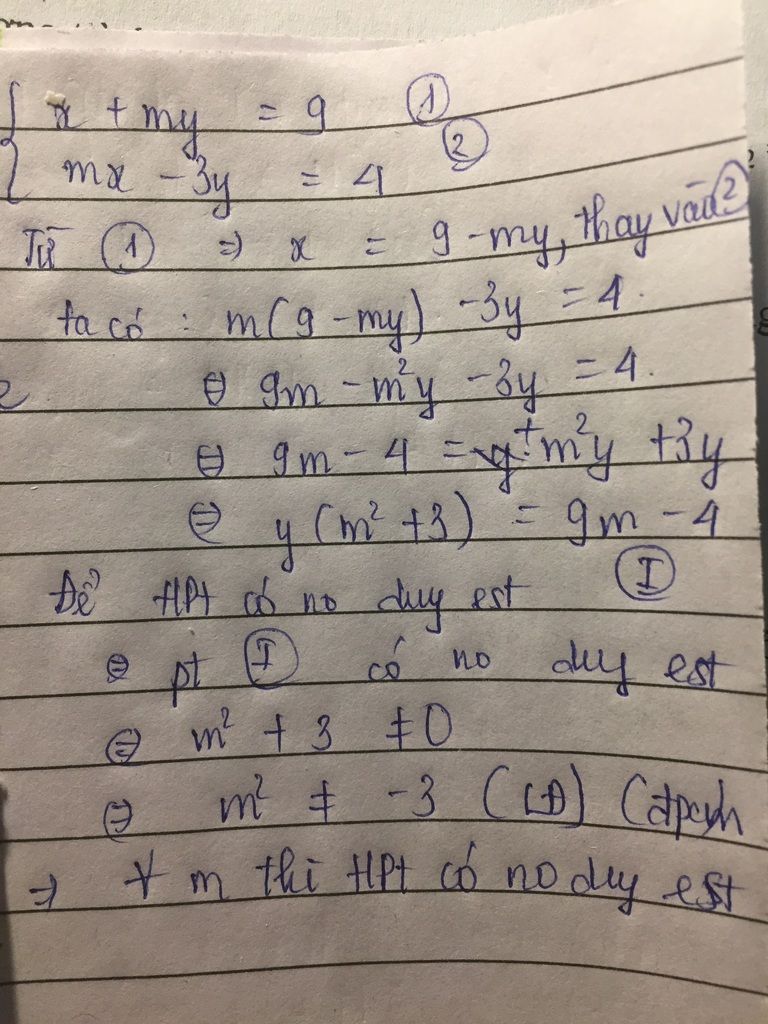 x + my = 9 ①
mx - 3y = 4 ②
Từ ① => x = 9 - my, thay vào ②
ta có : m(9 - my) - 3y = 4.
⇔ 9m - m²y - 3y = 4.
⇔ 9m - 4 = + m²y + 3y
⇔ y(m² + 3) = 9m - 4
Để HPt có no duy est Ⓘ
⇔ pt Ⓘ có no duy est
⇔ m² + 3 ≠ 0
⇔ m² ≠ -3 (LĐ) (đpcm
=> ∀ m thì HPt có no duy est